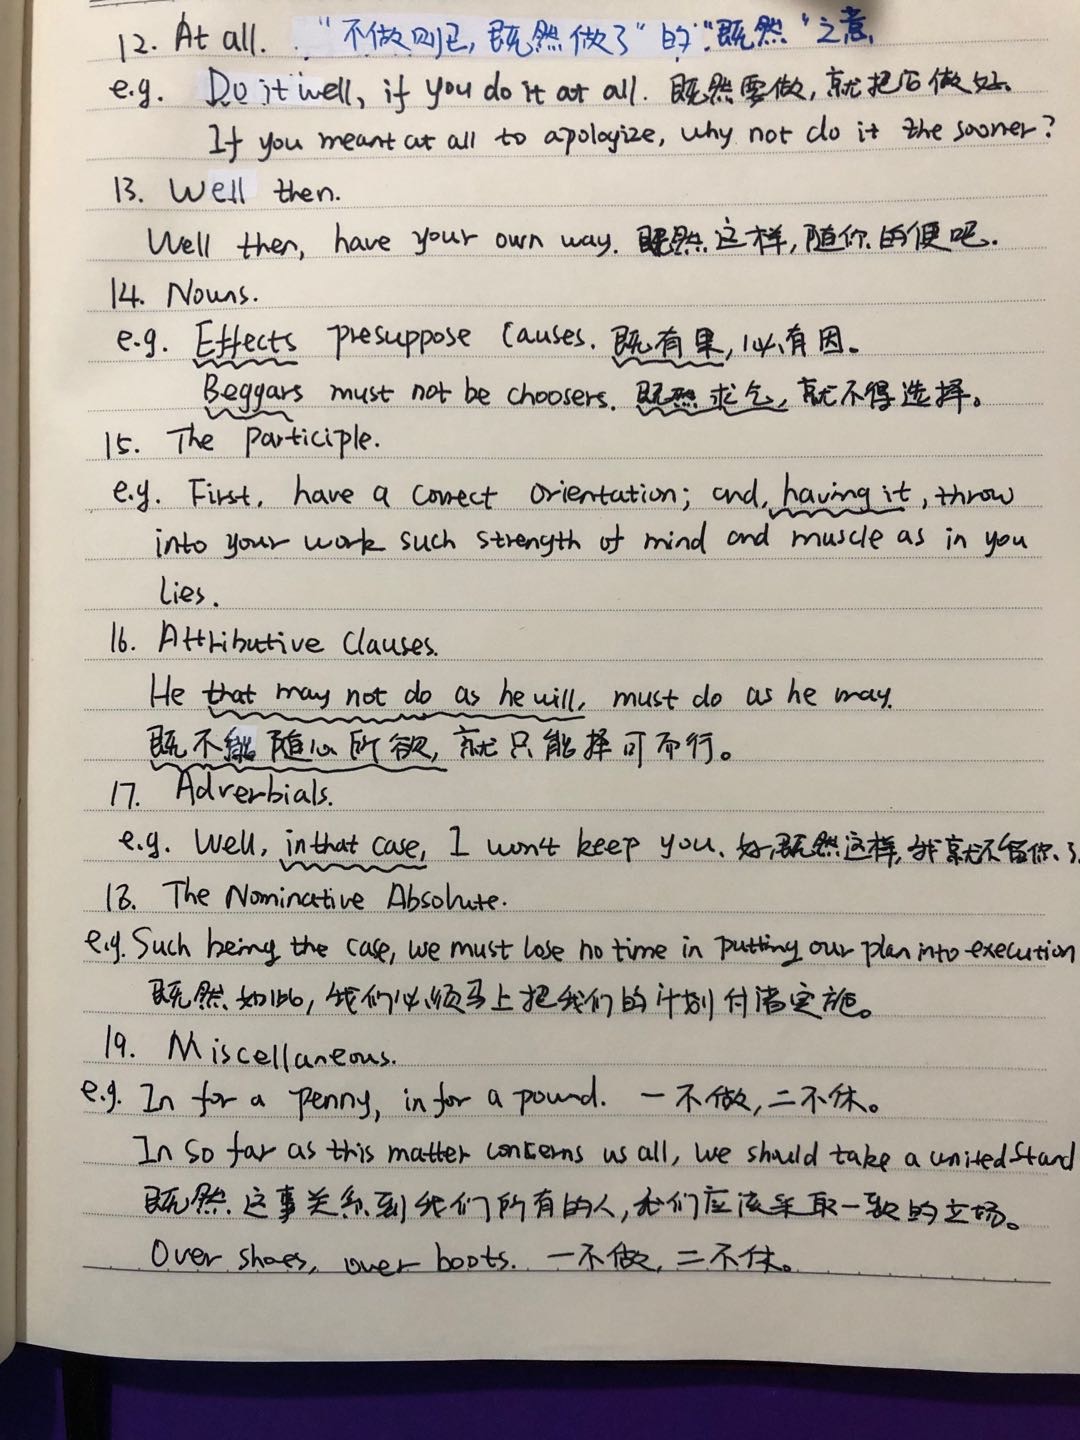 12. At all. "不做则已, 既然做了" 的 "既然" 之意,
e.g. Do it well, if you do it at all. 既然要做, 就把它做好。
If you meant at all to apologize, why not do it the sooner?
13. Well then.
Well then, have your own way. 既然这样, 随你的便吧.
14. Nouns.
e.g. Effects presuppose Causes. 既有果, 必有因。
Beggars must not be choosers. 既然求乞, 就不得选择。
15. The Participle.
e.g. First, have a correct orientation; and, having it, throw
into your work such strength of mind and muscle as in you
lies.
16. Attributive Clauses.
He that may not do as he will, must do as he may.
既不能随心所欲, 就只能择可而行。
17. Adverbials.
e.g. Well, in that case, I won't keep you. 好, 既然这样, 我就不留你了.
18. The Nominative Absolute.
e.g. Such being the case, we must lose no time in putting our plan into execution
既然如此, 我们必须马上把我们的计划付诸实施。
19. Miscellaneous.
e.g. In for a penny, in for a pound. 一不做, 二不休。
In so far as this matter concerns us all, we should take a united stand
既然这事关系到我们所有的人, 我们应该采取一致的立场。
Over shoes, over boots. 一不做, 二不休。